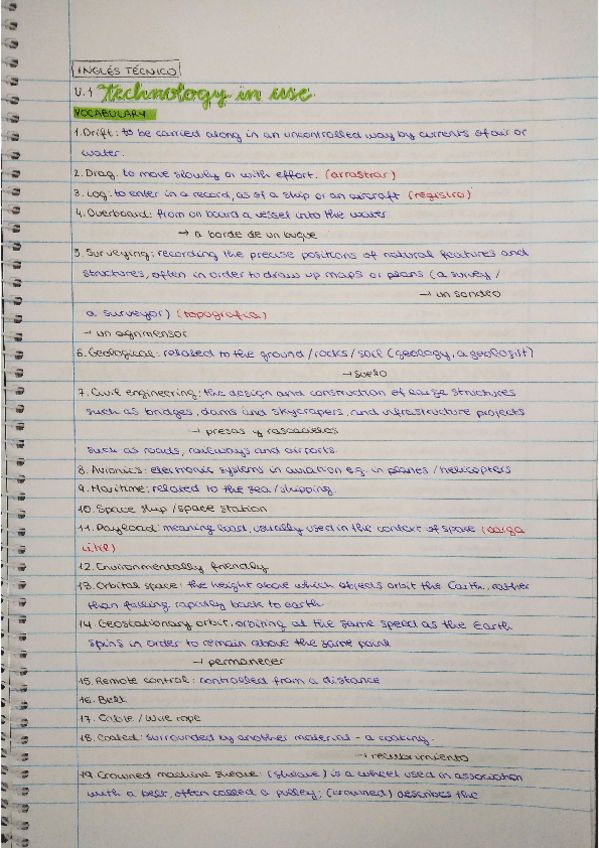 INGLÉS TÉCNICO
U.1 Technology in use
VOCABULARY
1. Drift: to be carried along in an uncontrolled way by currents of air or
water.
2. Drag: to move slowly or with effort. (arrastrar)
3. Log: to enter in a record, as of a ship or an aircraft (registro)
4. Overboard: from on board a vessel into the water
→ a borde de un buque
5. Surveying: recording the precise positions of natural features and
structures, often in order to draw up maps or plans (a survey /
→ un sondeo
a surveyor) (topografía)
→ un agrimensor
6. Geological: related to the ground / rocks / soil (geology, a geologist)
→ suelo
7. Civil engineering: the design and construction of large structures
such as bridges, dams and skycrapers, and infrastructure projects
→ presas y rascacielos
such as roads, railways and airports.
8. Avionics: electronic systems in aviation e.g. in planes / helicopters
9. Maritime: related to the sea / shipping
10. Space ship / space station
11. Payload: meaning load, usually used in the context of space (carga
útil)
12. Environmentally friendly
13. Orbital space: the height above which objects orbit the Earth, rather
than falling rapidly back to earth.
14. Geostationary orbit, orbiting at the same speed as the Earth
spins in order to remain above the same point
→ permanecer
15. Remote control: controlled from a distance
16. Belt
17. Cable / Wire rope
18. Coated: surrounded by another material - a coating.
→ recubrimiento
19. Crowned machine sheave: (sheave) is a wheel used in association
with a belt, often called a pulley; (crowned) describes the